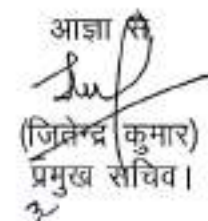 आज्ञा से
(जितेन्द्र कुमार)
प्रमुख सचिव।